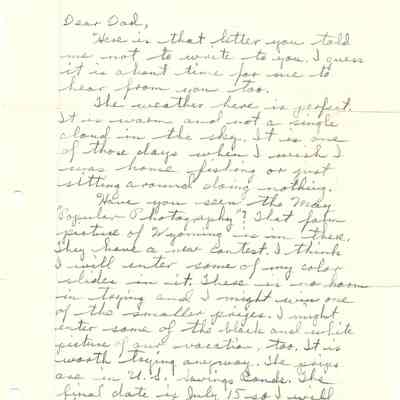 Dear Dad,
Here is that letter you told
me not to write to you. I guess
it is about time for me to
hear from you too.
The weather here is perfect.
It is warm and not a single
cloud in the sky. It is one
of those days when I wish I
was home fishing or just
sitting around doing nothing.
Have you seen the May
"Popular Photography"? That farm
picture of Wyoming is in there.
They have a new contest. I think
I will enter some of my color
slides in it. There is no harm
in trying and I might win one
of the smaller prizes. I might
enter some of the black and white
picture of our vacation, too. It is
worth trying anyway. The prizes
are in U.S. Savings Bonds. The
final date is July 15 so I will